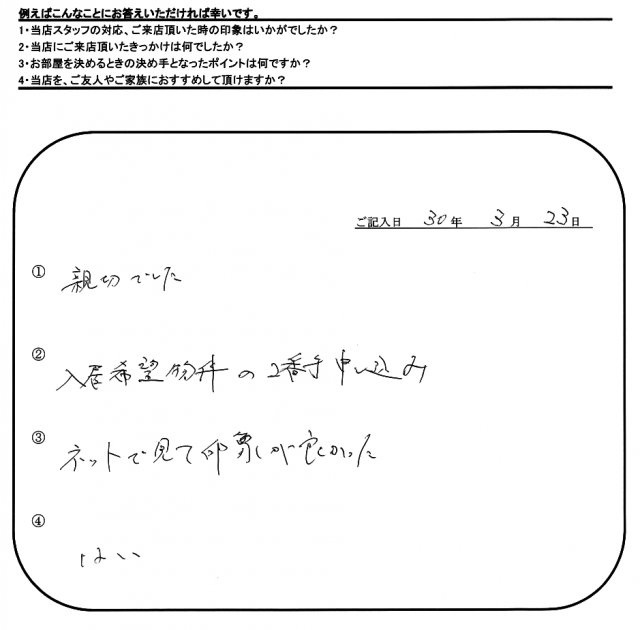 例えばこんなことにお答えいただければ幸いです。
1・当店スタッフの対応、ご来店頂いた時の印象はいかがでしたか？
2・当店にご来店頂いたきっかけは何でしたか？
3・お部屋を決めるときの決め手となったポイントは何ですか？
4・当店を、ご友人やご家族におすすめして頂けますか？
ご記入日 30年 3月 23日
① 親切でした
② 入居希望物件の2番手申し込み
③ ネットで見て印象が良かった
④ はい